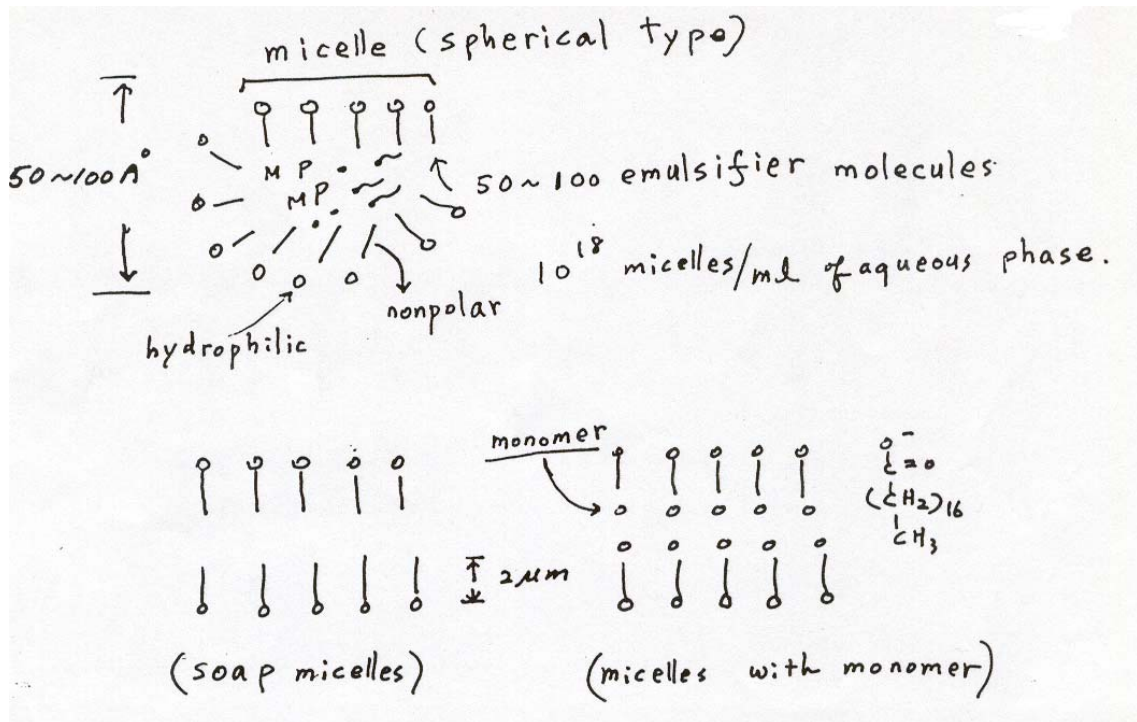 micelle (spherical type)
50~100 A°
M P
MP
50~100 emulsifier molecules
10^18 micelles/ml of aqueous phase.
nonpolar
hydrophilic
monomer
O-
C=O
(CH2)16
CH3
2 μm
(soap micelles)
(micelles with monomer)